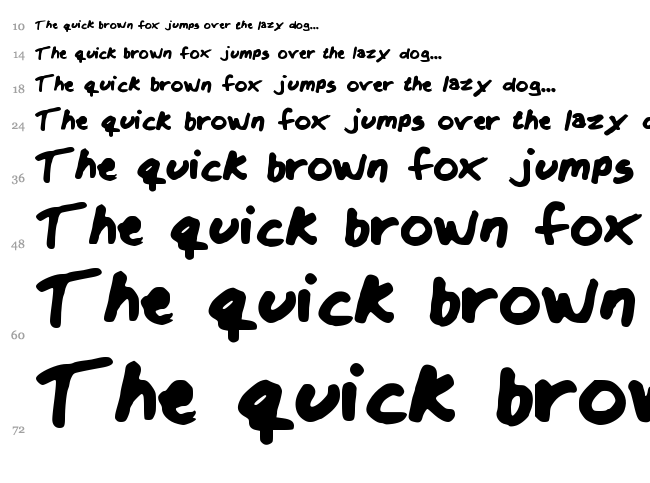 10 The quick brown fox jumps over the lazy dog...
14 The quick brown fox jumps over the lazy dog...
18 The quick brown fox jumps over the lazy dog...
24 The quick brown fox jumps over the lazy d
36 The quick brown fox jumps
48 The quick brown fox
60 The quick brown
72 The quick brow